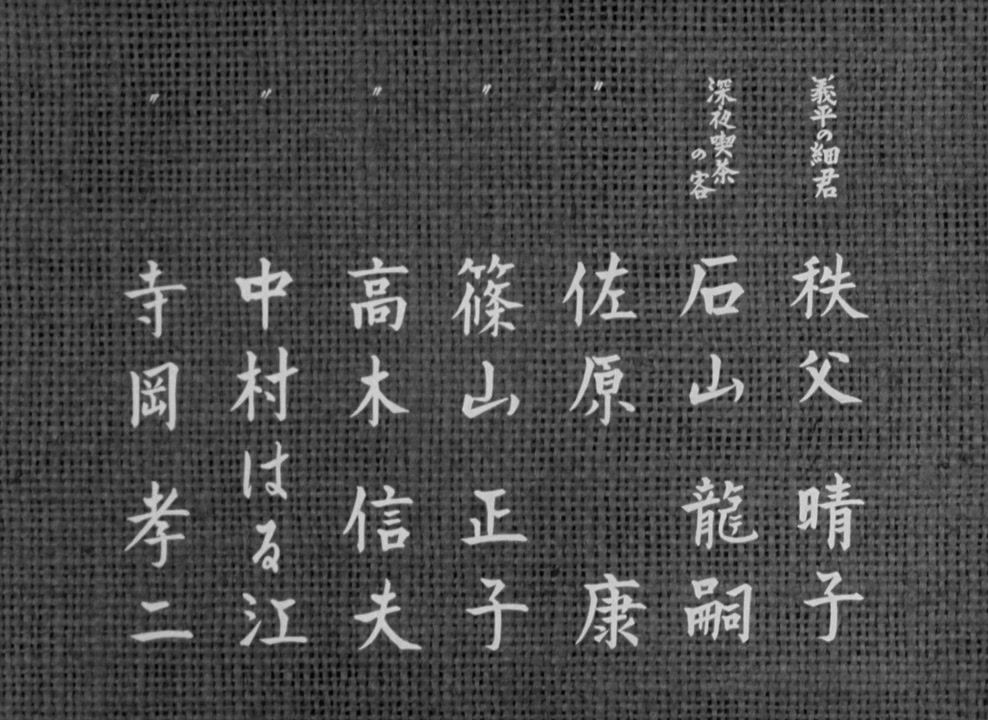 義平の細君
秩父晴子
深夜喫茶
の客
石山龍嗣
〃
佐原康
〃
篠山正子
〃
高木信夫
〃
中村はる江
〃
寺岡孝二